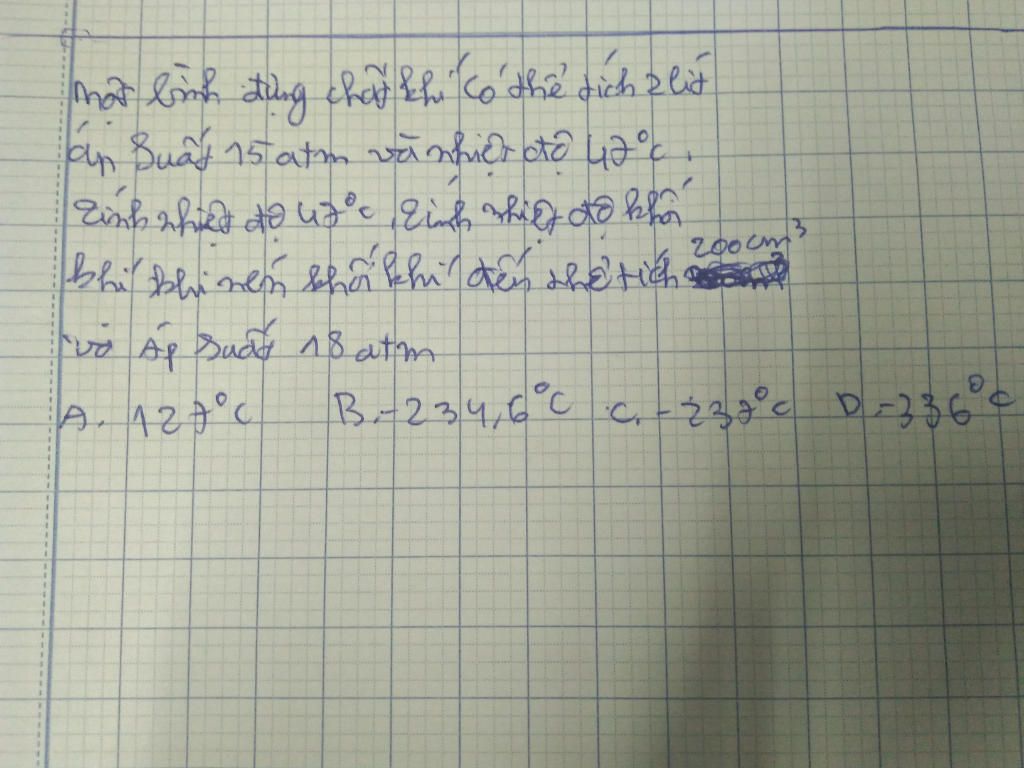 Một bình đựng chất khí có thể tích 2 lít
áp suất 15 atm và nhiệt độ 47°C.
Tính nhiệt độ 47°C. Tính nhiệt độ khối
khí khi nén khối khí đến thể tích 200 cm³
và Áp suất 18 atm
A. 127°C B. -234,6°C C. -237°C D. -336°C